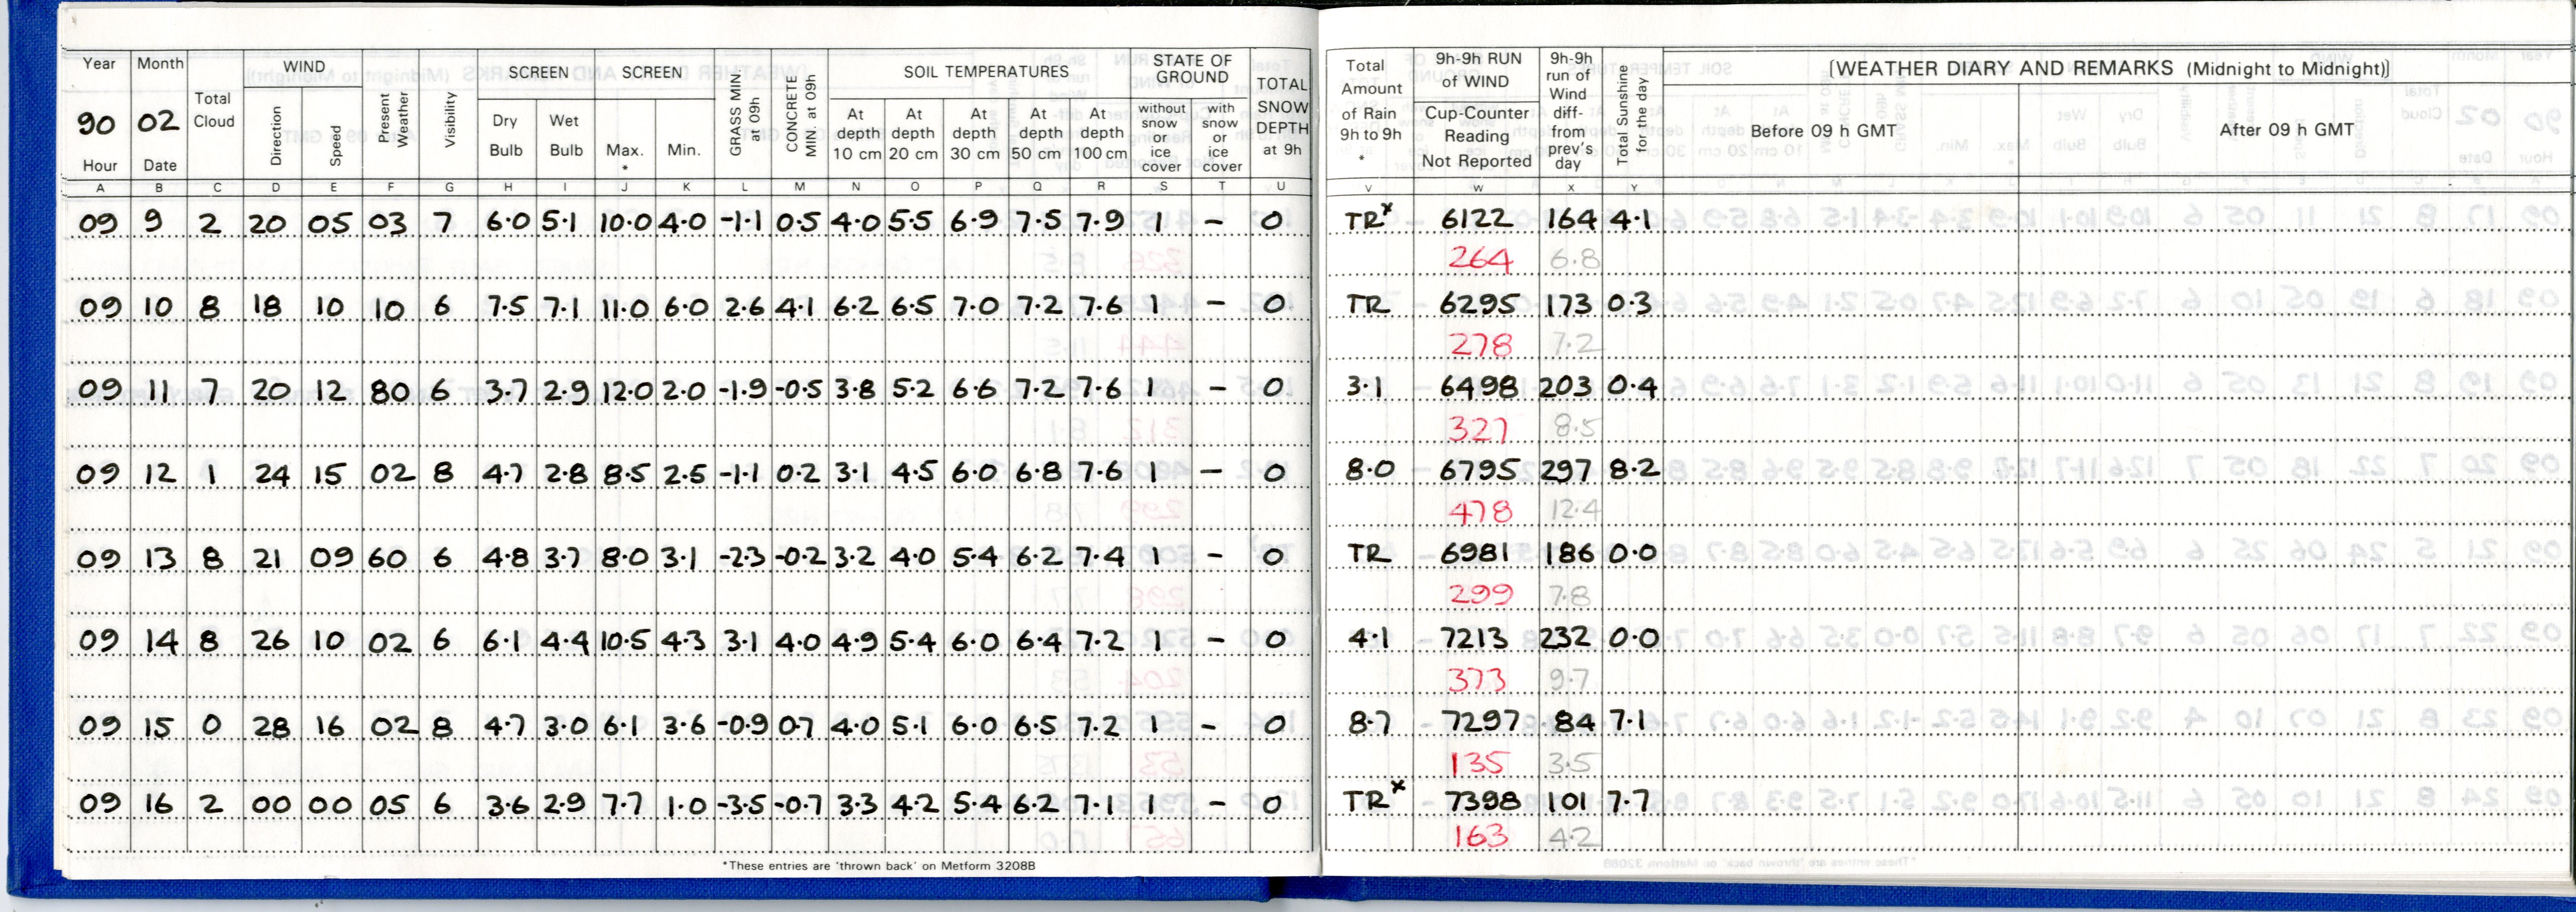 Year Month Total Cloud WIND Present Weather Visibility SCREEN SCREEN GRASS MIN at 09h CONCRETE MIN at 09h SOIL TEMPERATURES STATE OF GROUND TOTAL SNOW DEPTH at 9h
90 02 Direction Speed Dry Bulb Wet Bulb Max. * Min. At depth 10 cm At depth 20 cm At depth 30 cm At depth 50 cm At depth 100 cm without snow or ice cover with snow or ice cover
Hour Date
A B C D E F G H I J K L M N O P Q R S T U
09 9 2 20 05 03 7 6.0 5.1 10.0 4.0 -1.1 0.5 4.0 5.5 6.9 7.5 7.9 1 - 0
09 10 8 18 10 10 6 7.5 7.1 11.0 6.0 2.6 4.1 6.2 6.5 7.0 7.2 7.6 1 - 0
09 11 7 20 12 80 6 3.7 2.9 12.0 2.0 -1.9 -0.5 3.8 5.2 6.6 7.2 7.6 1 - 0
09 12 1 24 15 02 8 4.7 2.8 8.5 2.5 -1.1 0.2 3.1 4.5 6.0 6.8 7.6 1 - 0
09 13 8 21 09 60 6 4.8 3.7 8.0 3.1 -2.3 -0.2 3.2 4.0 5.4 6.2 7.4 1 - 0
09 14 8 26 10 02 6 6.1 4.4 10.5 4.3 3.1 4.0 4.9 5.4 6.0 6.4 7.2 1 - 0
09 15 0 28 16 02 8 4.7 3.0 6.1 3.6 -0.9 0.7 4.0 5.1 6.0 6.5 7.2 1 - 0
09 16 2 00 00 05 6 3.6 2.9 7.7 1.0 -3.5 -0.7 3.3 4.2 5.4 6.2 7.1 1 - 0
*These entries are 'thrown back' on Metform 3208B
Total Amount of Rain 9h to 9h * 9h-9h RUN OF WIND 9h-9h run of Wind diff- from prev's day Total Sunshine for the day [WEATHER DIARY AND REMARKS (Midnight to Midnight)]
Cup-Counter Reading Not Reported Before 09 h GMT After 09 h GMT
V W X Y
TR* 6122 164 4.1
264 6.8
TR 6295 173 0.3
278 7.2
3.1 6498 203 0.4
327 8.5
8.0 6795 297 8.2
478 12.4
TR 6981 186 0.0
299 7.8
4.1 7213 232 0.0
373 9.7
8.7 7297 84 7.1
135 3.5
TR* 7398 101 7.7
163 4.2